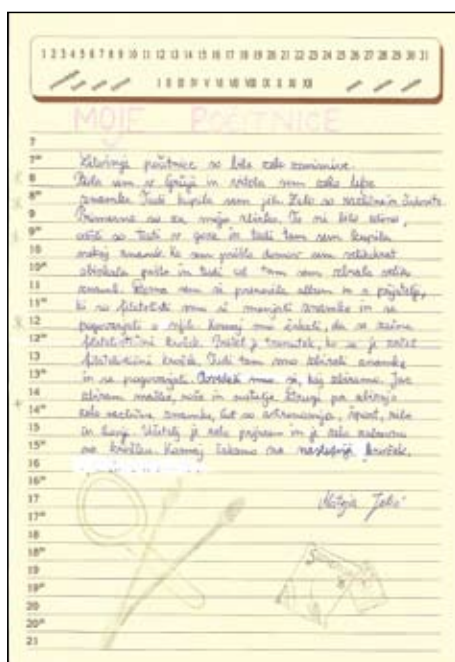 1 2 3 4 5 6 7 8 9 10 11 12 13 14 15 16 17 18 19 20 21 22 23 24 25 26 27 28 29 30 31
I II III IV V VI VII VIII IX X XI XII
MOJE POČITNICE
7
7³⁰ Letošnje počitnice so bile zelo zanimive.
8 Bila sem v Grčiji in videla sem zelo lepe
8³⁰ znamke. Tudi kupila sem jih. Zelo so različne in čudovite.
9 Primerne so za mojo zbirko. To ni bilo edino,
9³⁰ odšli so tudi v gore in tudi tam sem kupila
10 nekaj znamk. Ko sem prišla domov sem velikokrat
10³⁰ obiskala pošto in tudi od tam sem zbrala veliko
11 znamk. Doma sem si prenovila album in s prijatelji,
11³⁰ ki so filatelisti smo si menjali znamke in se
12 pogovarjali o njih. Komaj smo čakali, da se začne
12³⁰ filatelistični krožek. Prišel je trenutek, ko se je začel
13 filatelistični krožek. Tudi tam smo zbirali znamke
13³⁰ in se pogovarjali. Povedali smo si, kaj zbiramo. Jaz
14 zbiram mačke, rože in metulje. Drugi pa zbirajo
14³⁰ zelo različne znamke, kot so astronomija, šport, ribe
15 in konji. Učitelj je zelo prijazen in je zelo zabavno
15³⁰ na krožku. Komaj čakamo na naslednji krožek.
16
16³⁰
17 Mateja
17³⁰
18
18³⁰
19
19³⁰
20
20³⁰
21